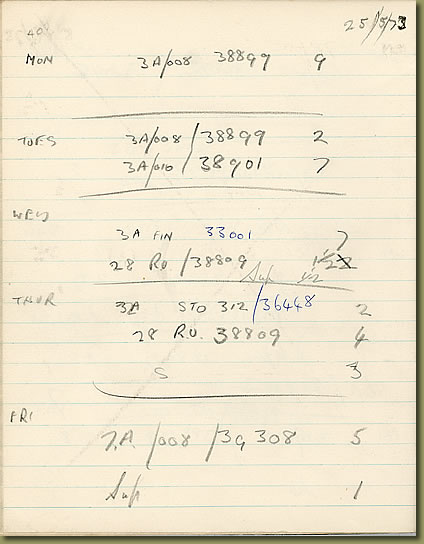 40 25/5/73
MON 3A/008 38899 9
TUES 3A/008 / 38899 2
3A/010 / 38901 7
WED
3A FIN 33001 7
28 RU / 38809 1½
Sup ½
THUR 3A STO 312 / 36448 2
28 RU. 38809 4
S 3
FRI
7.A. /008 / 39308 5
Sup 1